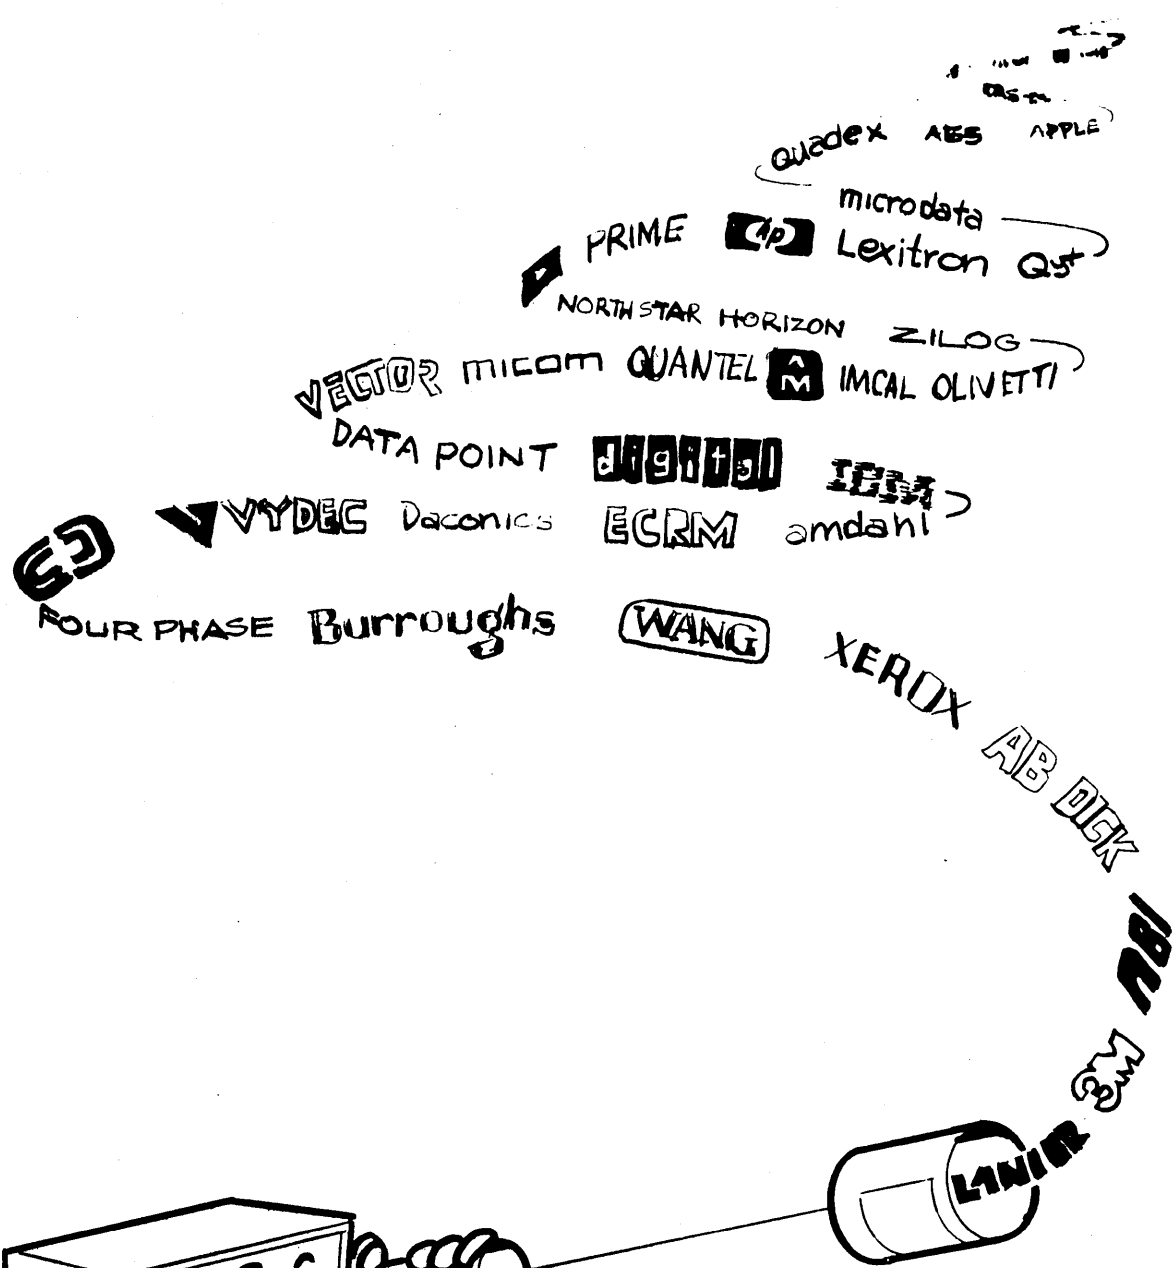 Quadex AES APPLE
microdata
PRIME hp Lexitron Qyt
NORTH STAR HORIZON ZILOG
VECTOR micom QUANTEL AM IMCAL OLIVETTI
DATA POINT digital IBM
VYDEC Daconics ECRM amdahl
FOUR PHASE Burroughs WANG XEROX
AB DICK
NBI
3M
LANIER